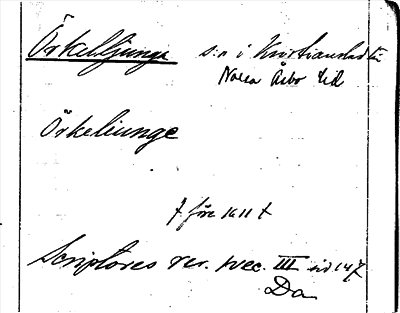 Örkelljunga s:n i Kristianstads län
Norra Åsbo hd
Örkeliunge
† före 1611 †
Scriptores rer. svec. III sid 147
Da